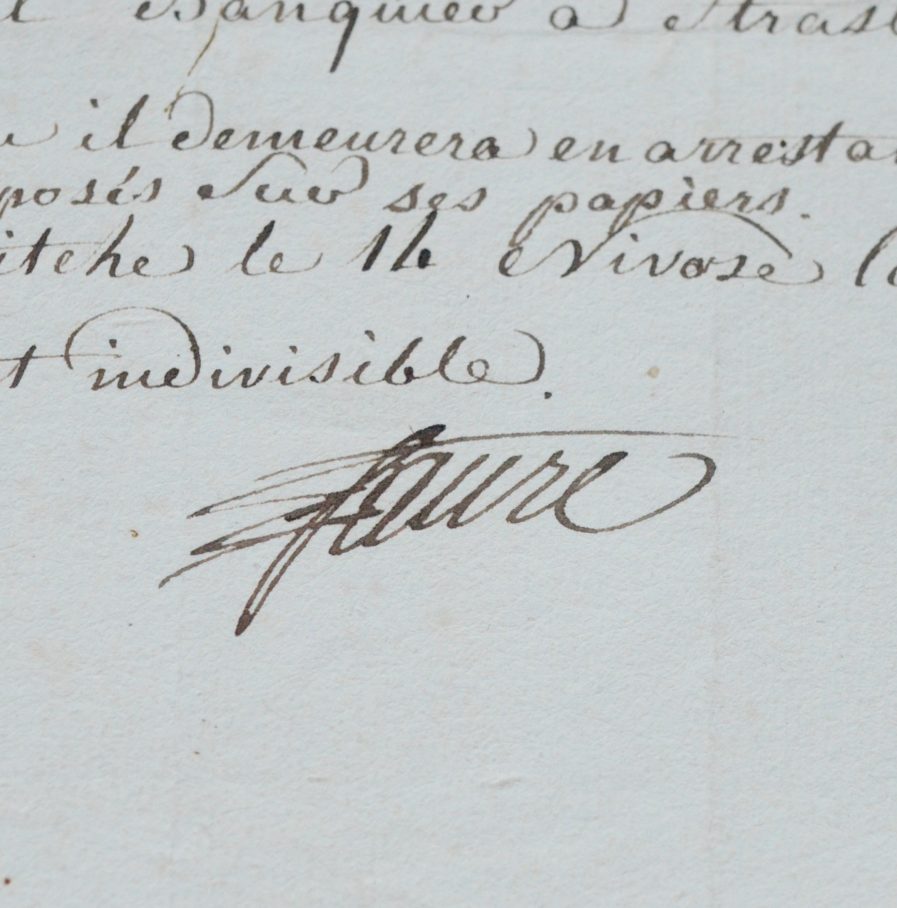 Banquier à Stras
il demeurera en arresta
posés sur ses papiers.
itche le 14 Nivose l
t indivisible.
Faure